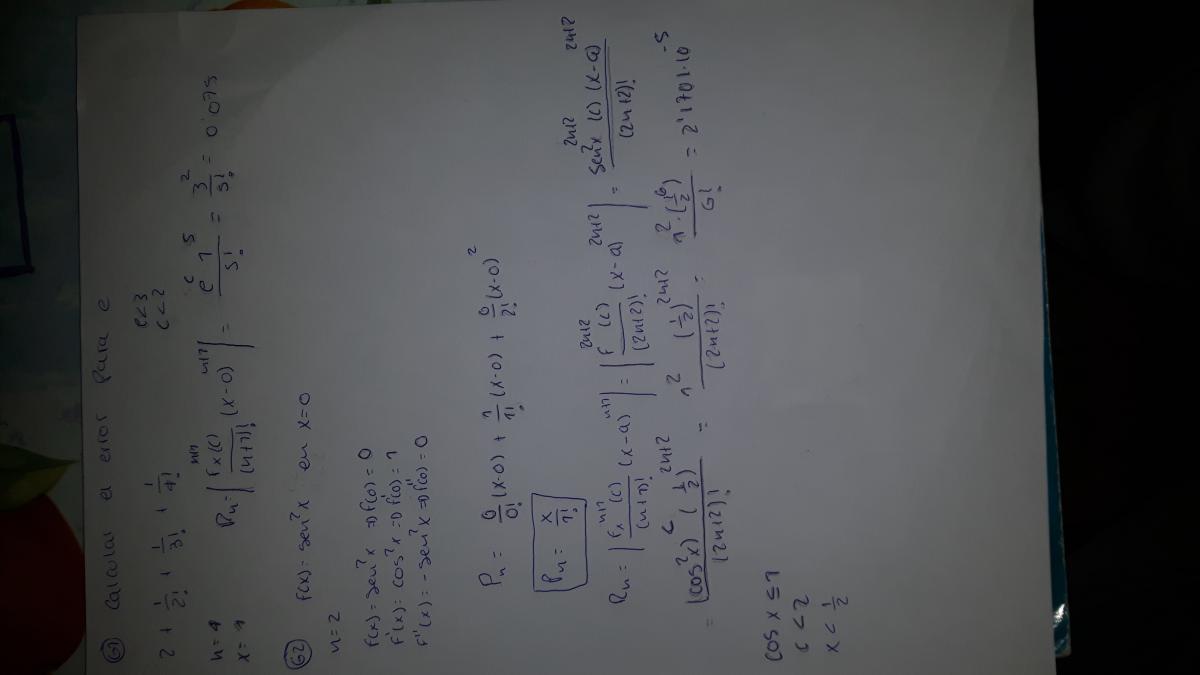 61 Calcular el error para e
2 + 1/2! + 1/3! + 1/4!
e<3
c<2
n=4
x=1
Rn = | fx^(n+1)(c)/(n+1)! (x-0)^(n+1) | = e^c 1^5/5! = 3^2/5! = 0'075
62 f(x) = sen²x en x=0
n=2
f(x) = sen²x => f(0) = 0
f'(x) = cos²x => f'(0) = 1
f''(x) = -sen²x => f''(0) = 0
Pn = 0/0! (x-0) + 1/1! (x-0) + 0/2! (x-0)²
Pn = x/1!
Rn = | fx^(n+1)(c)/(n+1)! (x-a)^(n+1) | = | f^(2n+2)(c)/(2n+2)! (x-a)^(2n+2) | = sen²x^(2n+2) (c) (x-a)^(2n+2)/(2n+2)!
= (cos²x)^c (1/2)^(2n+2)/(2n+2)! = 1² (1/2)^(2n+2)/(2n+2)! = 1² · (1/2)^6/6! = 2'1701·10^-5
cos x ≤ 1
c < 2
x < 1/2